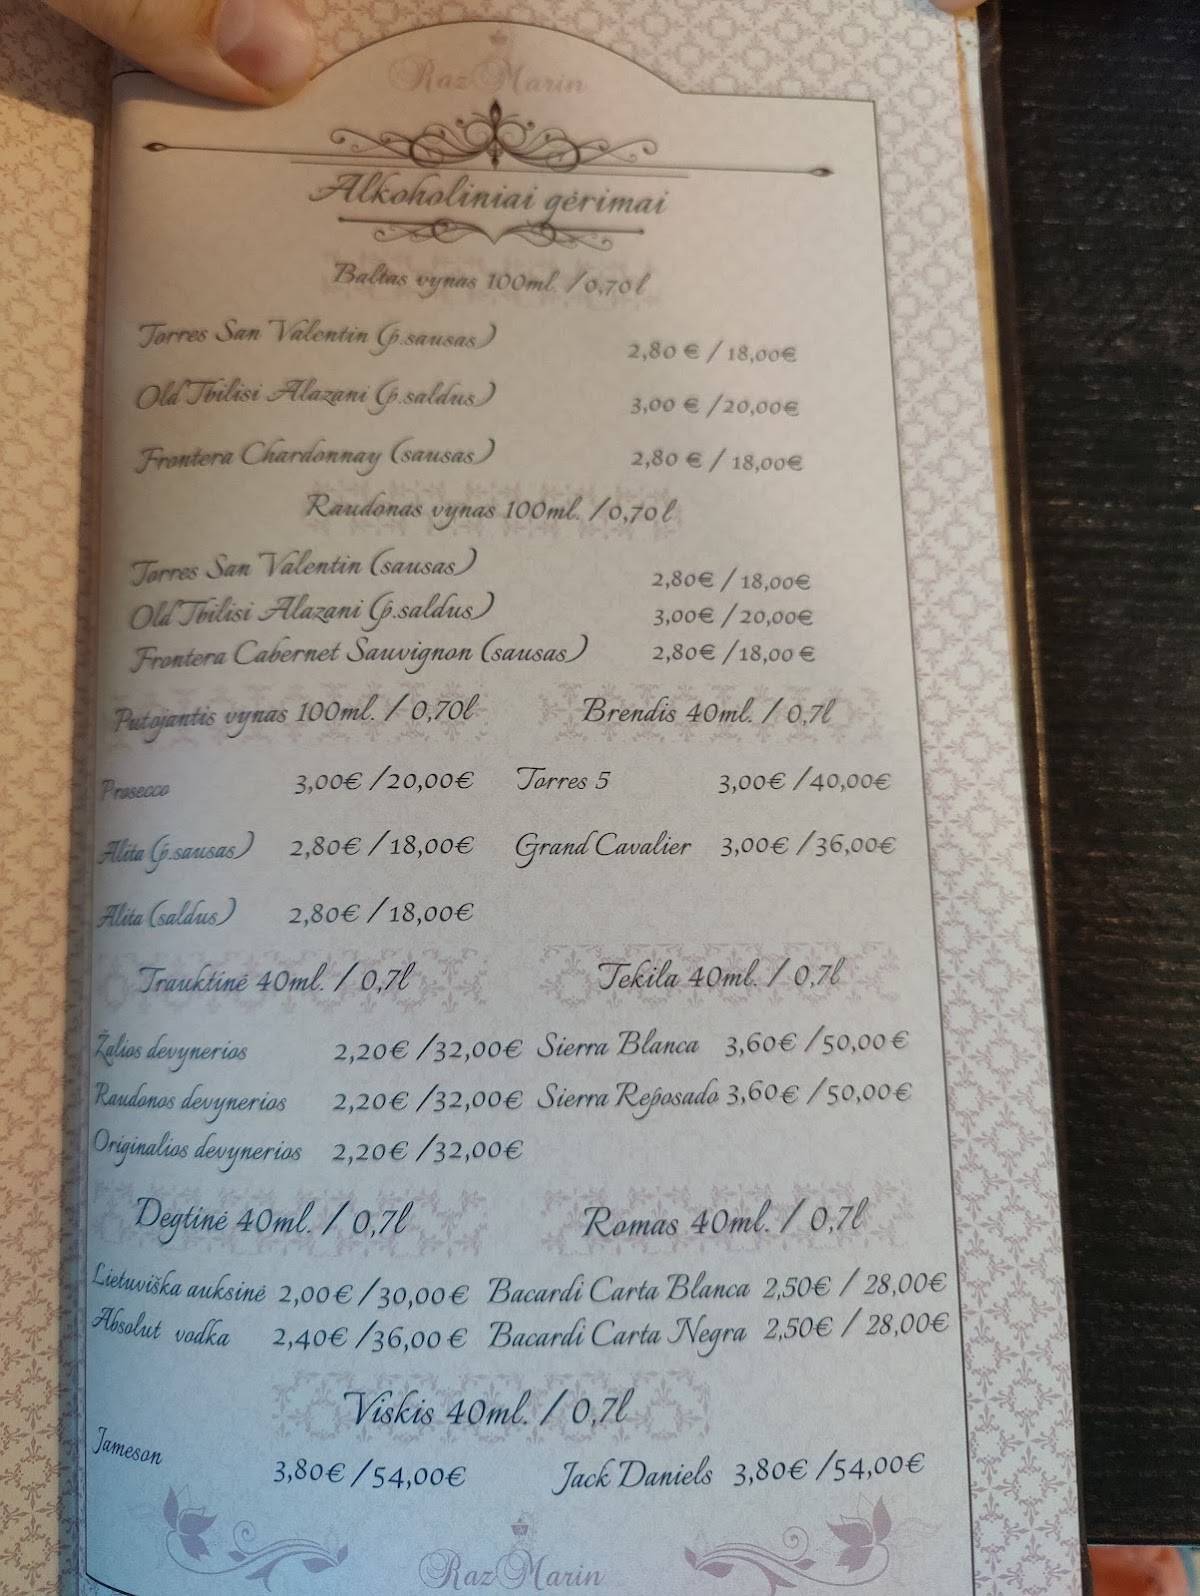 Raz Marin
Alkoholiniai gėrimai
Baltas vynas 100ml. / 0,70 l
Torres San Valentin (p.sausas) 2,80 € / 18,00€
Old Tbilisi Alazani (p.saldus) 3,00 € / 20,00€
Frontera Chardonnay (sausas) 2,80 € / 18,00€
Raudonas vynas 100ml. / 0,70 l
Torres San Valentin (sausas) 2,80€ / 18,00€
Old Tbilisi Alazani (p.saldus) 3,00€ / 20,00€
Frontera Cabernet Sauvignon (sausas) 2,80€ / 18,00 €
Putojantis vynas 100ml. / 0,70l Brendis 40ml. / 0,7l
Prosecco 3,00€ / 20,00€ Torres 5 3,00€ / 40,00€
Alita (p.sausas) 2,80€ / 18,00€ Grand Cavalier 3,00€ / 36,00€
Alita (saldus) 2,80€ / 18,00€
Trauktinė 40ml. / 0,7l Tekila 40ml. / 0,7l
Žalios devynerios 2,20€ / 32,00€ Sierra Blanca 3,60€ / 50,00 €
Raudonos devynerios 2,20€ / 32,00€ Sierra Reposado 3,60€ / 50,00€
Originalios devynerios 2,20€ / 32,00€
Degtinė 40ml. / 0,7l Romas 40ml. / 0,7l
Lietuviška auksinė 2,00€ / 30,00€ Bacardi Carta Blanca 2,50€ / 28,00€
Absolut vodka 2,40€ / 36,00 € Bacardi Carta Negra 2,50€ / 28,00€
Viskis 40ml. / 0,7l
Jameson 3,80€ / 54,00€ Jack Daniels 3,80€ / 54,00€
Raz Marin